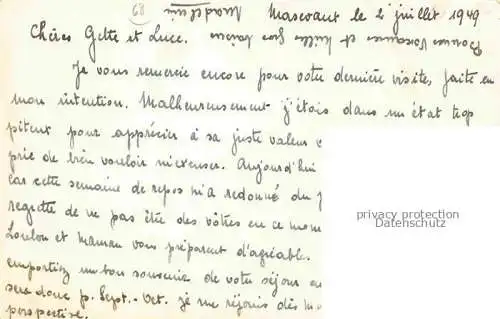 68
Masevaux le 2 juillet 1949
Madeleine
Bonnes Vacances et milles Gros baisers
Chères Gette et Luce.
Je vous remercie encore pour votre dernière visite, faite en
mon intention. Malheureusement j'étais dans un état trop
piteux pour apprécier à sa juste valeur
prie de bien vouloir m'excuser. Aujourd'hui
car cette semaine de repos m'a redonné du
regrette de ne pas être des vôtres en ce mom
Loulou et Maman vous préparent d'agréable.
emportiez un bon souvenir de votre séjour
sera donc p. Sept. - Oct. je me réjouis dès m
perspective.
privacy protection
Datenschutz